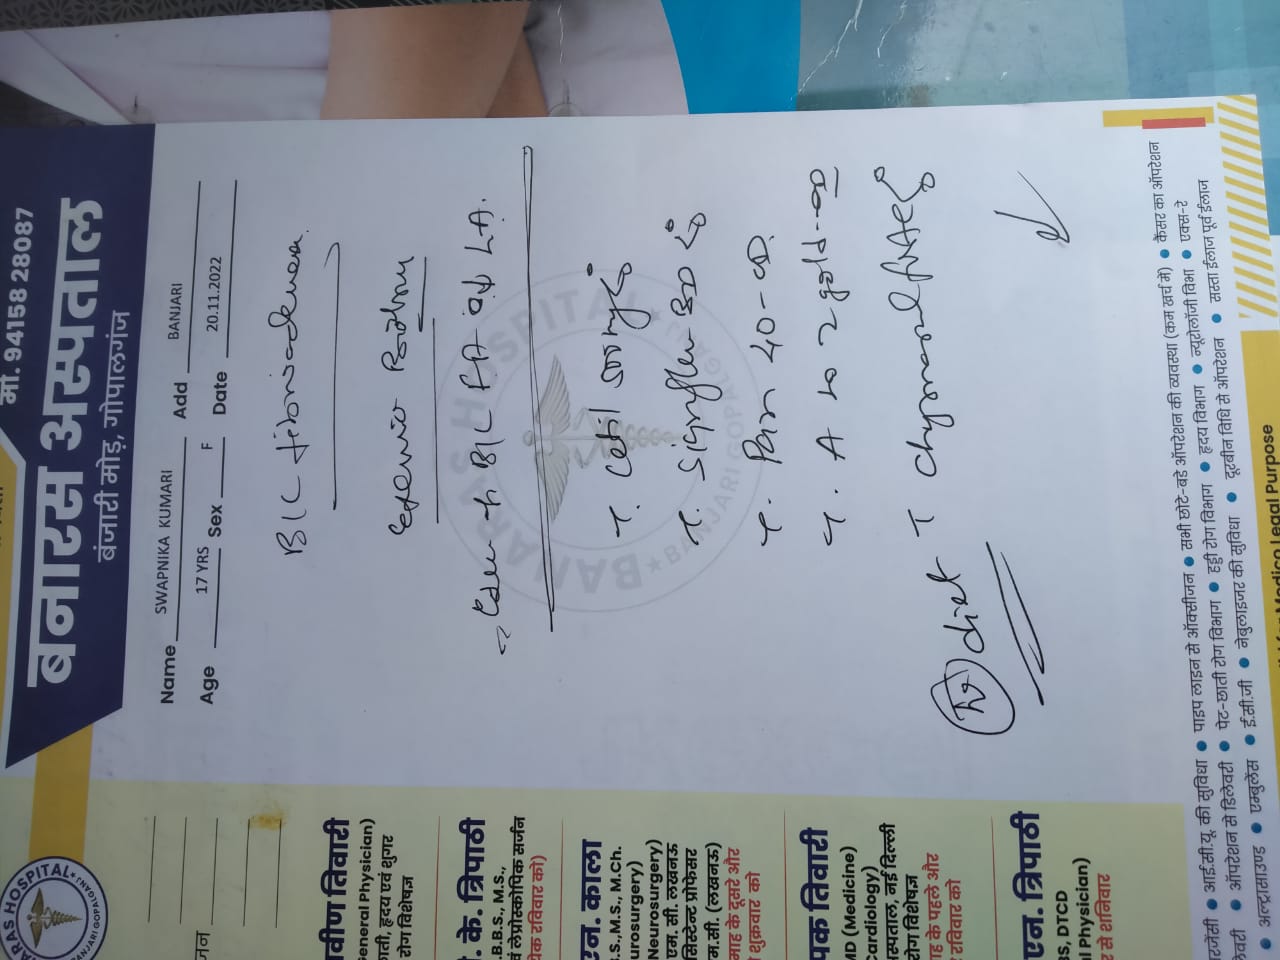 मो. 94158 28087
बनारस अस्पताल
बंजारी मोड़, गोपालगंज
Name SWAPNIKA KUMARI Add BANJARI
Age 17 YRS Sex F Date 20.11.2022
B/L fibroadenoma
B/L FA LA.
T. Cetil 500mg
T.
T. Pan 40 -
T. A to Z gold -
T Chymoral forte
diet
BANARAS HOSPITAL
BANJARI GOPALGANJ
जन
वीण तिवारी
General Physician)
ाती, हृदय एवं शुगर
रोग विशेषज्ञ
. के. त्रिपाठी
.B.B.S., M.S.,
वं लेप्रोस्कोपिक सर्जन
येक रविवार को)
एन. काला
.S.,M.S., M.Ch.
urosurgery)
Neurosurgery)
एम. सी. लखनऊ
सिस्टेन्ट प्रोफेसर
म.सी. (लखनऊ)
माह के दूसरे और
शुक्रवार को
पक तिवारी
MD (Medicine)
Cardiology)
स्पताल, नई दिल्ली
रोग विशेषज्ञ
ाह के पहले और
रविवार को
एन. त्रिपाठी
BS, DTCD
l Physician)
र से शनिवार
रजेंसी • आई.सी.यू. की सुविधा • पाइप लाइन से ऑक्सीजन • सभी छोटे-बड़े ऑपरेशन की व्यवस्था (कम खर्च में) • कैंसर का ऑपरेशन
लेवरी • ऑपरेशन से डिलेवरी • पेट-छाती रोग विभाग • हड्डी रोग विभाग • हृदय विभाग • न्यूरोलॉजी विभा • एक्स-रे
• अल्ट्रासाउण्ड • एम्बुलेंस • ई.सी.जी • नेबुलाइजर की सुविधा • दूरबीन विधि से ऑपरेशन • सस्ता ईलाज पूर्व ईलाज
Medico Legal Purpose